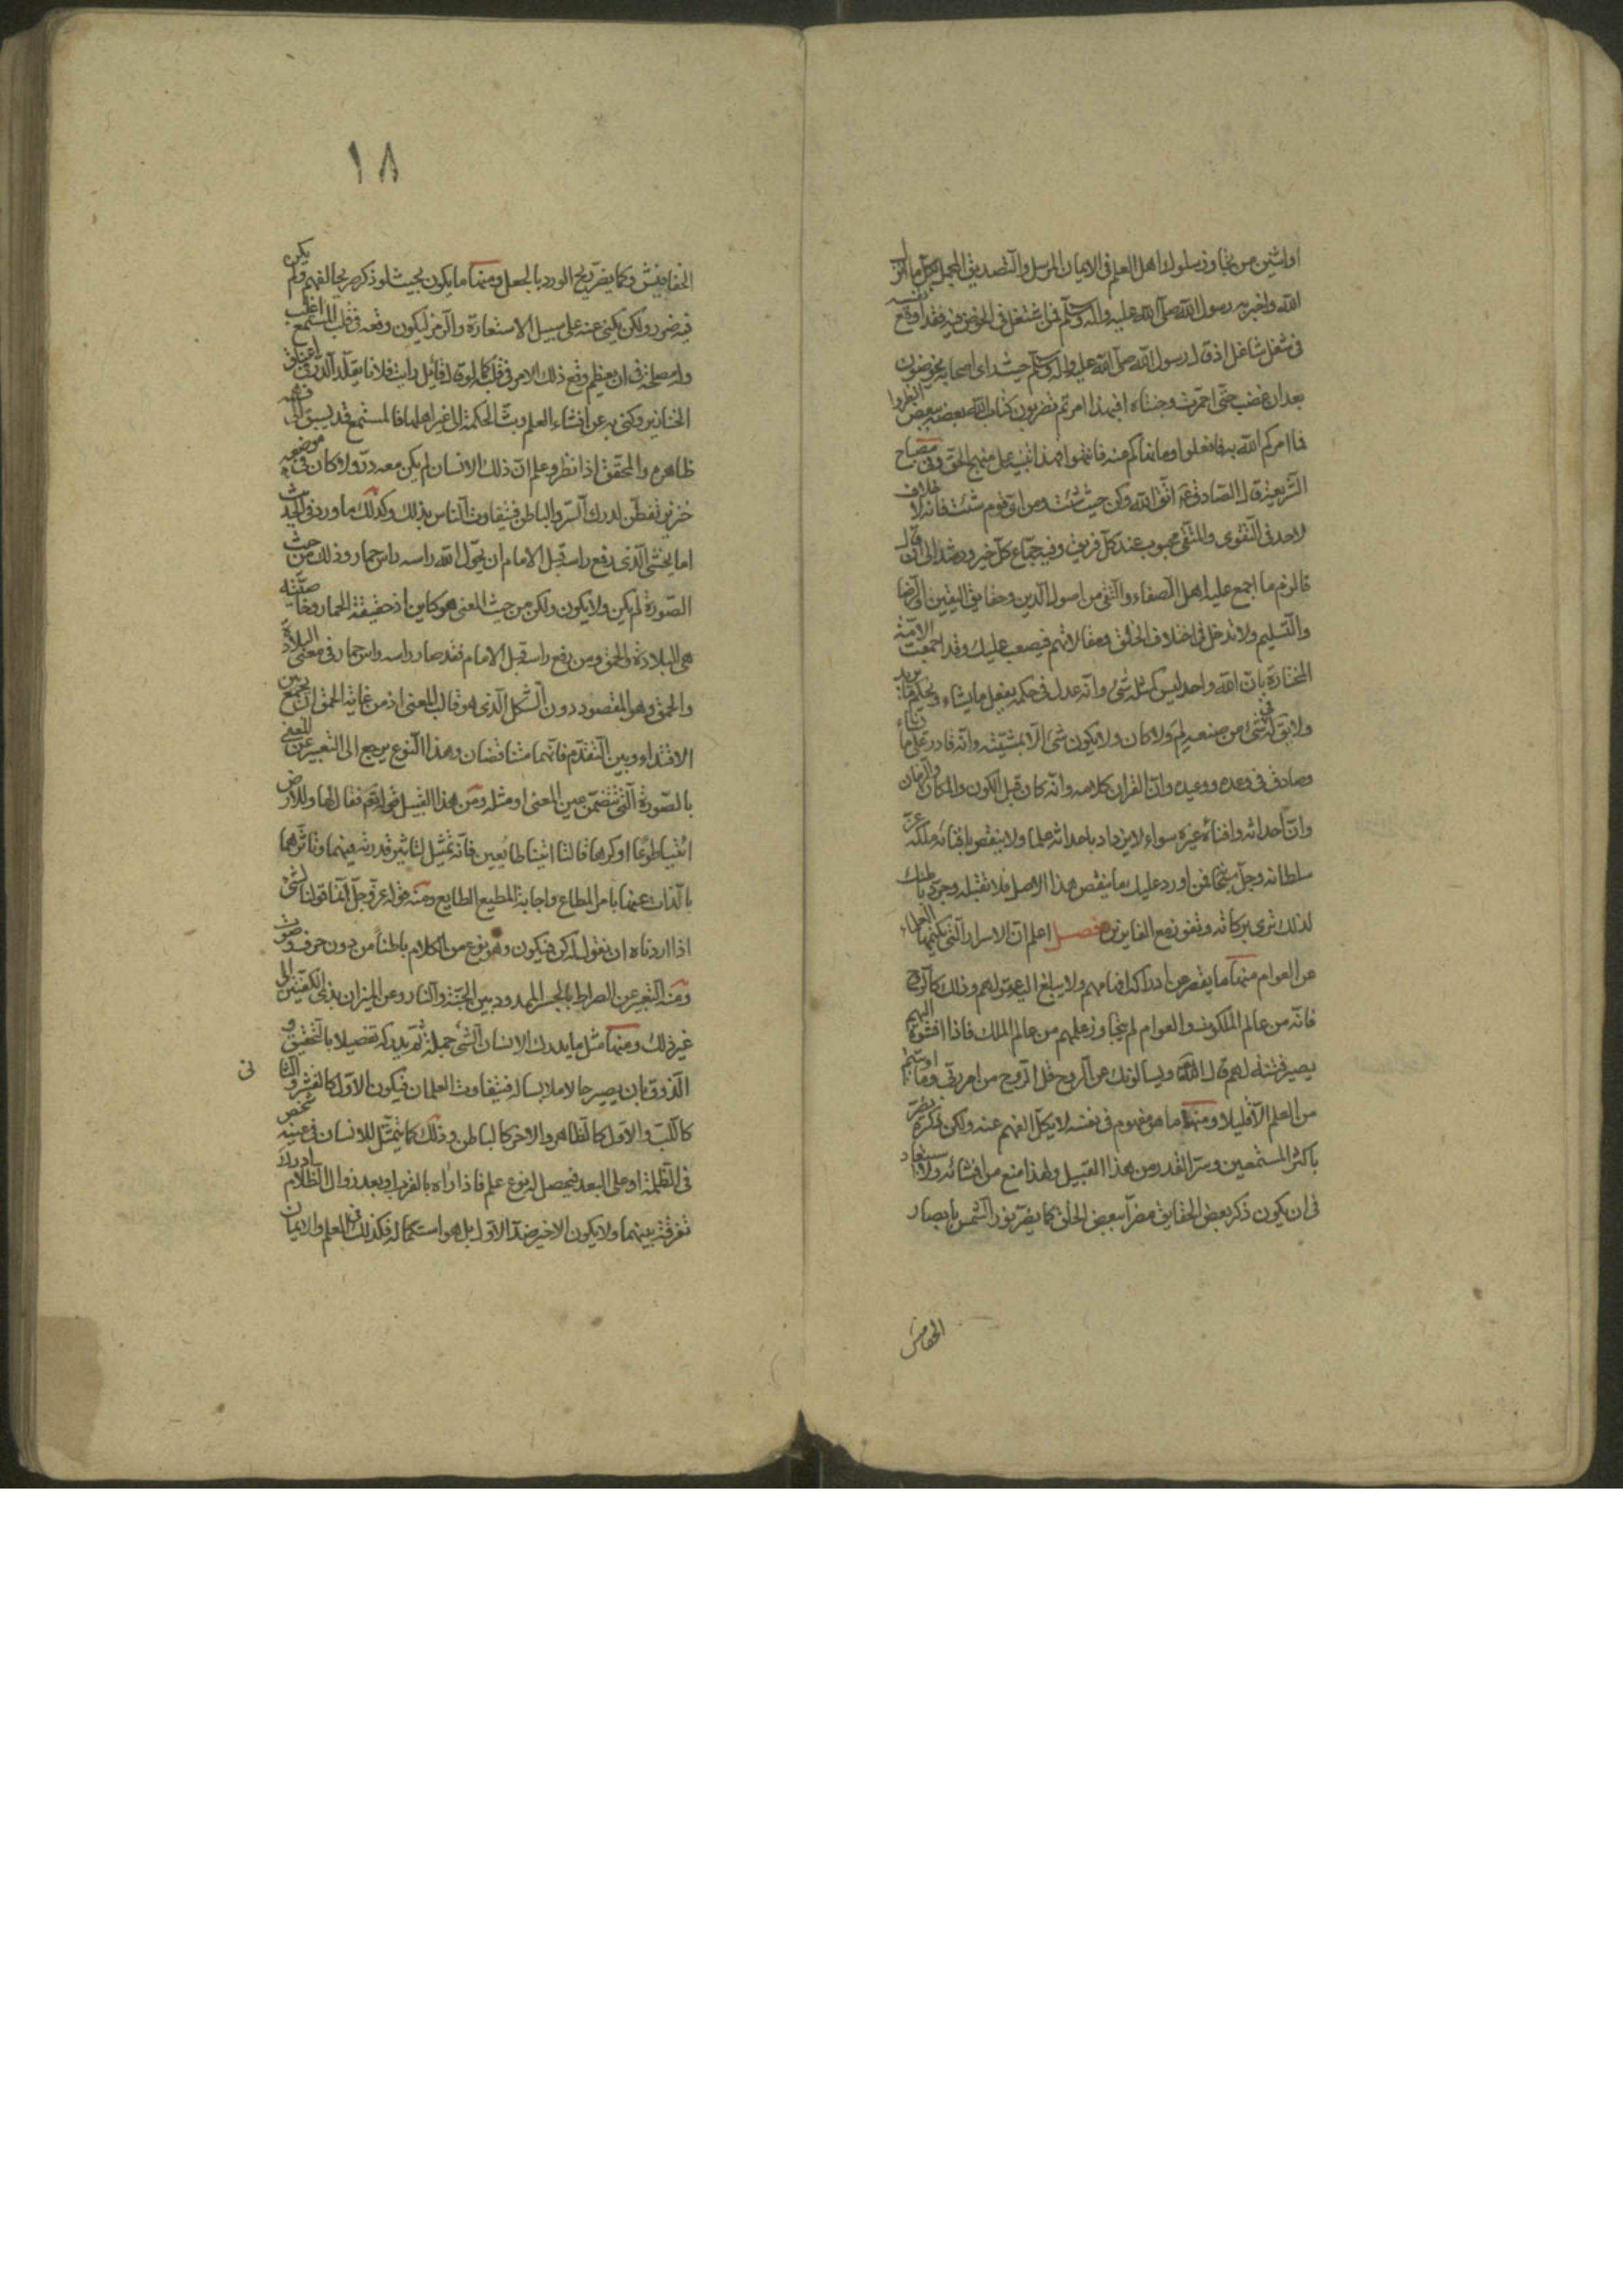 او اثنين من تجاوز سلوك اهل العلم فى الايمان المرسل والتصديق المجمل بكل ما انزل
الله واخبر به رسول الله صلى الله عليه واله وسلم فمن اشتغل فى الخوض فيه فقد اوقع نفسه
فى شغل شاغل اذ قال رسول الله صلى الله عليه واله وسلم حيث راى اصحابه يخوضون
بعد ان غضب حتى احمرت وجنتاه افبهذا امرتم تضربون كتاب الله بعضه ببعض انظروا
فما امركم الله به فافعلوا وما نهاكم عنه فانتهوا فهذا تنبيه على منهج الحق وفى مصباح
الشريعة قال الصادق ع اتق الله وكن حيث شئت ومن اى قوم شئت فانه لا خلاف
لاحد فى التقوى والمتقى محبوب عند كل فريق وفيه جماع كل خير ورشد الى ان قال
فالزم ما اجمع عليه اهل الصفاء والتقى من اصول الدين وحقايق اليقين والرضا
والتسليم ولا تدخل فى اختلاف الخلق ومقالاتهم فيصعب عليك وقد اجمعت الامة
المختارة بان الله واحد ليس كمثله شئ وانه عدل فى حكمه يفعل ما يشاء ويحكم ما يريد
ولا يقال فى شئ من صنعه لم ولا كان ولا يكون شئ الا بمشيته وانه قادر على ما يشاء
وصادق فى وعده ووعيده وان القران كلامه وانه كان قبل الكون والمكان والزمان
وان احداثه وافناءه غيره سواء لا يزداد باحداثه علما ولا ينقص بافنائه ملكه عز
سلطانه وجل سبحانه فمن اورد عليك ما ينقص هذا الاصل فلا تقبله وجرد باطنك
لذلك ترى بركاته وتفوز مع الفايزين فصل اعلم ان الاسرار التى يكتمها العلماء
عن العوام منها ما يقصر عن ادراكه افهامهم ولا يبلغ اليه عقولهم وذلك كالروح
فانه من عالم الملكوت والعوام لم يتجاوز علمهم من عالم الملك فاذا افشوه اليهم
يصير فتنة لهم قال الله ويسالونك عن الروح قل الروح من امر ربى وما اوتيتم
من العلم الا قليلا ومنها ما هو مفهوم فى نفسه لا يكل الفهم عنه ولكن ذكره يضر
باكثر المستمعين وسر القدر من هذا القبيل ولهذا منع من افشائه ولا استبعاد
فى ان يكون ذكر بعض الحقايق مضرا ببعض الخلق كما يضر نور الشمس بابصار
الخفافيش
١٨
الخفافيش وكما يضر ريح الورد بالجعل ومنها ما يكون بحيث لو ذكر صريحا لفهم ولم يكن
فيه ضرر ولكن يكنى عنه على سبيل الاستعارة والرمز ليكون وقعه فى قلب المستمع اغلب
وله مصلحة فى ان يعظم وقع ذلك الامر فى قلبه كما لو قال قائل رايت فلانا يقلد الدر فى اعناق
الخنازير وكنى به عن افشاء العلم وبث الحكمة الى غير اهلها فالمستمع قد يسبق الى فهمه
ظاهره والمحقق اذا نظر وعلم ان ذلك الانسان لم يكن معه در ولا كان فى موضعه
خنزير تفطن لدرك السر والباطن فيتفاوت الناس بذلك وكذلك ما ورد فى الحديث
اما يخشى الذى رفع راسه قبل الامام ان يحول الله راسه راس حمار وذلك من حيث
الصورة لم يكن ولا يكون ولكن من حيث المعنى هو كاين اذ حقيقة الحمار وخاصيته
هى البلادة والحمق ومن رفع راسه قبل الامام فقد صار راسه راس حمار فى معنى البلادة
والحمق وهو المقصود دون الشكل الذى هو قالب المعنى اذ من غاية الحمق ان يجمع بين
الاقتداء وبين التقدم فانهما متناقضان وهذا النوع يرجع الى التعبير عن المعنى
بالصورة التى تتضمن عين المعنى او مثله ومن هذا القبيل قوله تعم فقال لها وللارض
ائتيا طوعا او كرها قالتا اتينا طائعين فانه تمثيل لتاثير قدرته فيهما وتاثرهما
بالذات عنها بامر المطاع واجابة المطيع الطايع ومنه قوله عز وجل انما قولنا لشئ
اذا اردناه ان نقول له كن فيكون وهو نوع من الكلام باطنا من دون حرف وصوت
ومنه التعبير عن الصراط بالجسر الممدود بين الجنة والنار وعن الميزان بذى الكفتين الى
غير ذلك ومنها مثل ما يدرك الانسان الشئ جملة ثم يدركه تفصيلا بالتحقيق و
الذوق بان يصير حالا ملابسا له فيتفاوت العلمان فيكون الاول كالقشر والثا
نى
كاللب والاول كالظاهر والاخر كالباطن وذلك كما يتمثل للانسان فى عينه شخص
فى الظلمة او على البعد فيحصل له نوع علم فاذا راه بالقرب او بعد زوال الظلام ادرك
تفرقة بينهما ولا يكون الاخير ضد الاول بل هو استكمال له فكذلك فى العلم والايمان